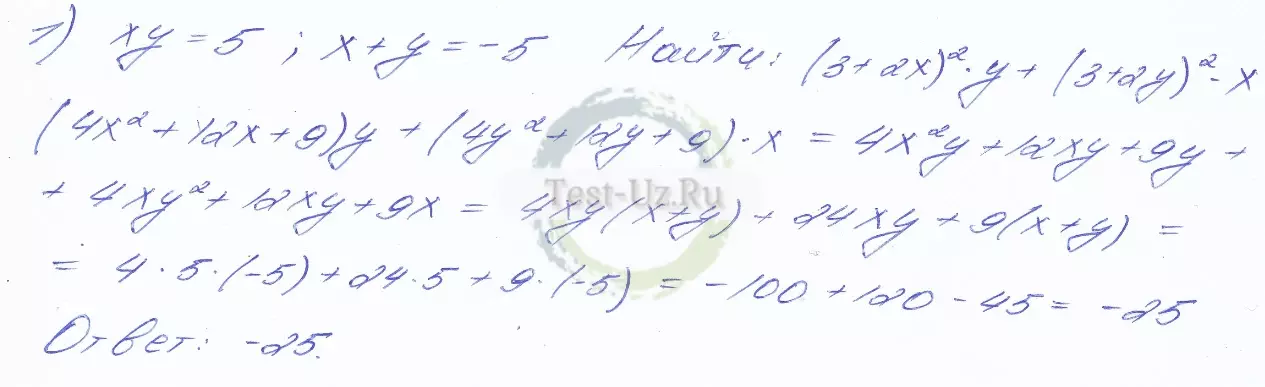 1) xy = 5 ; x + y = -5 Найти: (3+2x)²·y + (3+2y)²·x
(4x²+12x+9)y + (4y²+12y+9)·x = 4x²y+12xy+9y+
+ 4xy²+12xy+9x = 4xy(x+y)+24xy+9(x+y) =
Test-Uz.Ru
= 4·5·(-5)+24·5+9·(-5) = -100+120-45= -25
Ответ: -25.